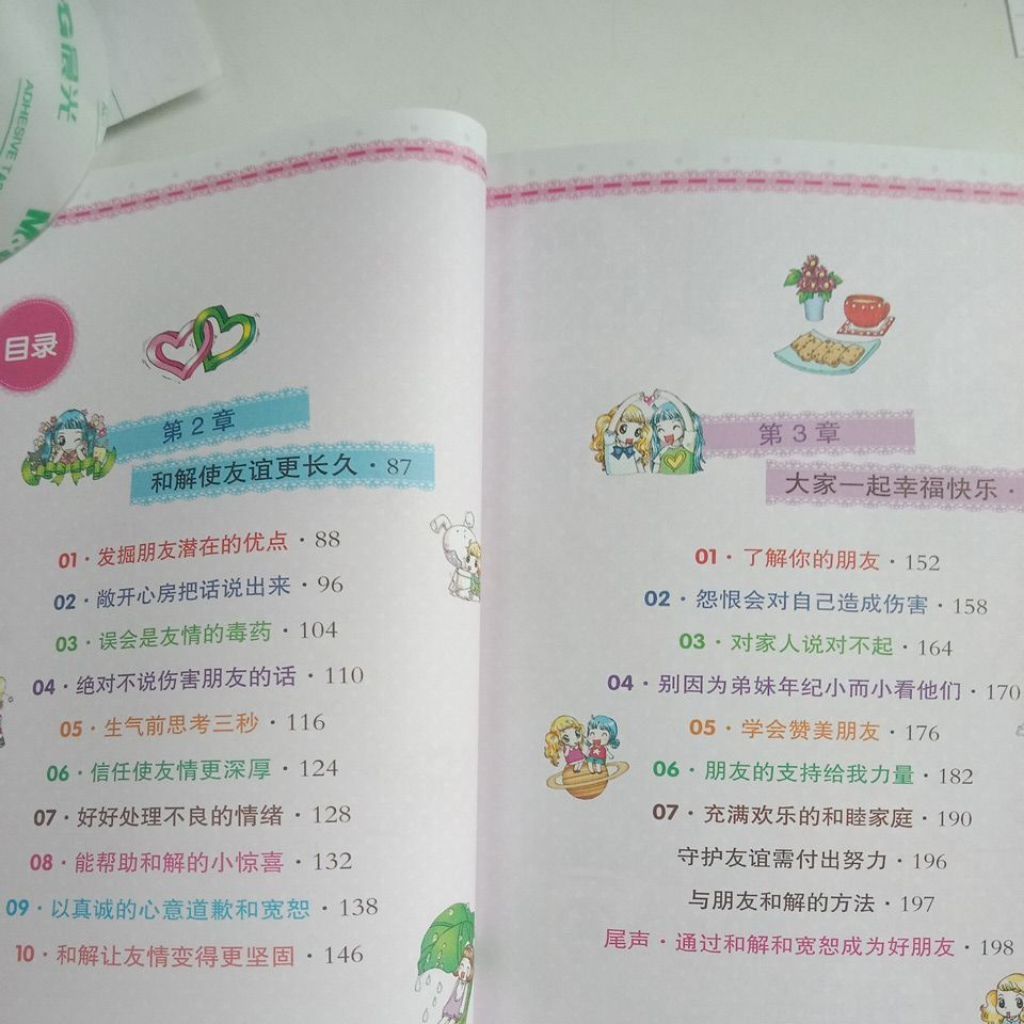 晨光
ADHESIVE
目录
第2章
和解使友谊更长久·87
01·发掘朋友潜在的优点·88
02·敞开心房把话说出来·96
03·误会是友情的毒药·104
04·绝对不说伤害朋友的话·110
05·生气前思考三秒·116
06·信任使友情更深厚·124
07·好好处理不良的情绪·128
08·能帮助和解的小惊喜·132
09·以真诚的心意道歉和宽恕·138
10·和解让友情变得更坚固·146
第3章
大家一起幸福快乐·
01·了解你的朋友·152
02·怨恨会对自己造成伤害·158
03·对家人说对不起·164
04·别因为弟妹年纪小而小看他们·170
05·学会赞美朋友·176
06·朋友的支持给我力量·182
07·充满欢乐的和睦家庭·190
守护友谊需付出努力·196
与朋友和解的方法·197
尾声·通过和解和宽恕成为好朋友·198